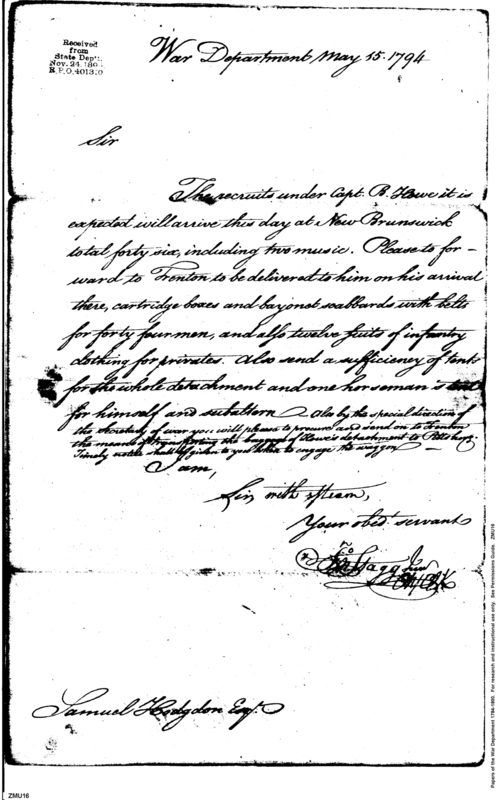 Received
from
State Dep't.
Nov. 24, 1894
R.P.O. 401310
War Department May 15. 1794
Sir
The recruits under Capt. R. Howe it is
expected will arrive this day at New Brunswick
total forty six, including two music. Please to for-
ward to Trenton to be delivered to him on his arrival
there, cartridge boxes and bayonet scabbards with belts
for forty four men, and also twelve suits of infantry
clothing for privates. Also send a sufficiency of tents
for the whole detachment and one horseman's tent
for himself and subaltern Also by the special direction of
the Secretary of war you will please to procure and send on to Trenton
the means of transporting the baggage of Howe's detachment to Pittsburg.
Timely notice shall be given to you when to engage the waggon
I am,
Sir, with esteem,
Your obed. servant
Jno Stagg Junr
Samuel Hodgdon Esqr.
Papers of the War Department 1784-1800. For research and instructional use only. See Permissions Guide. ZMU16
ZMU16